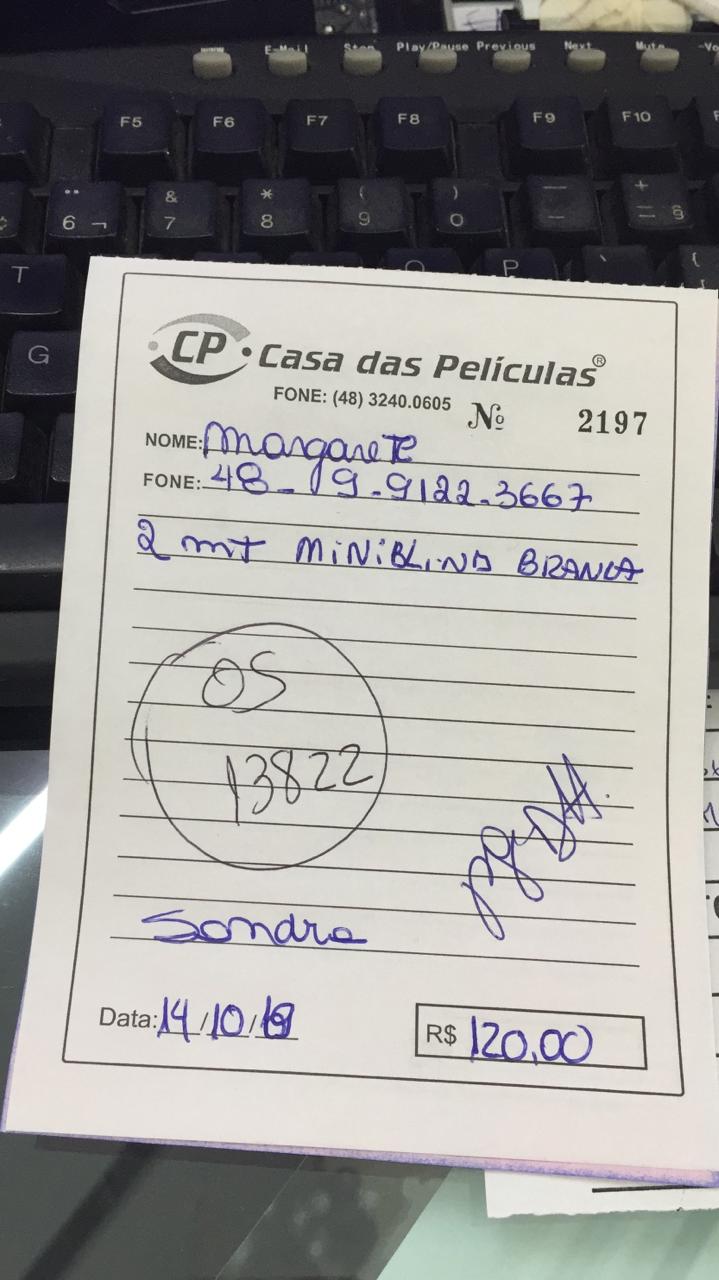 E-Mail Stop Play/Pause Previous Next Mute
F5 F6 F7 F8 F9 F10
& * ( ) +
6 ¬ 7 8 9 0 = §
T O P
G
CP Casa das Películas®
FONE: (48) 3240.0605 Nº 2197
NOME: Margarete
FONE: 48-9.9122.3667
2 mt MiNiBLiND BRANCA
OS
13822
Sandra
Data: 14/10/19 R$ 120,00